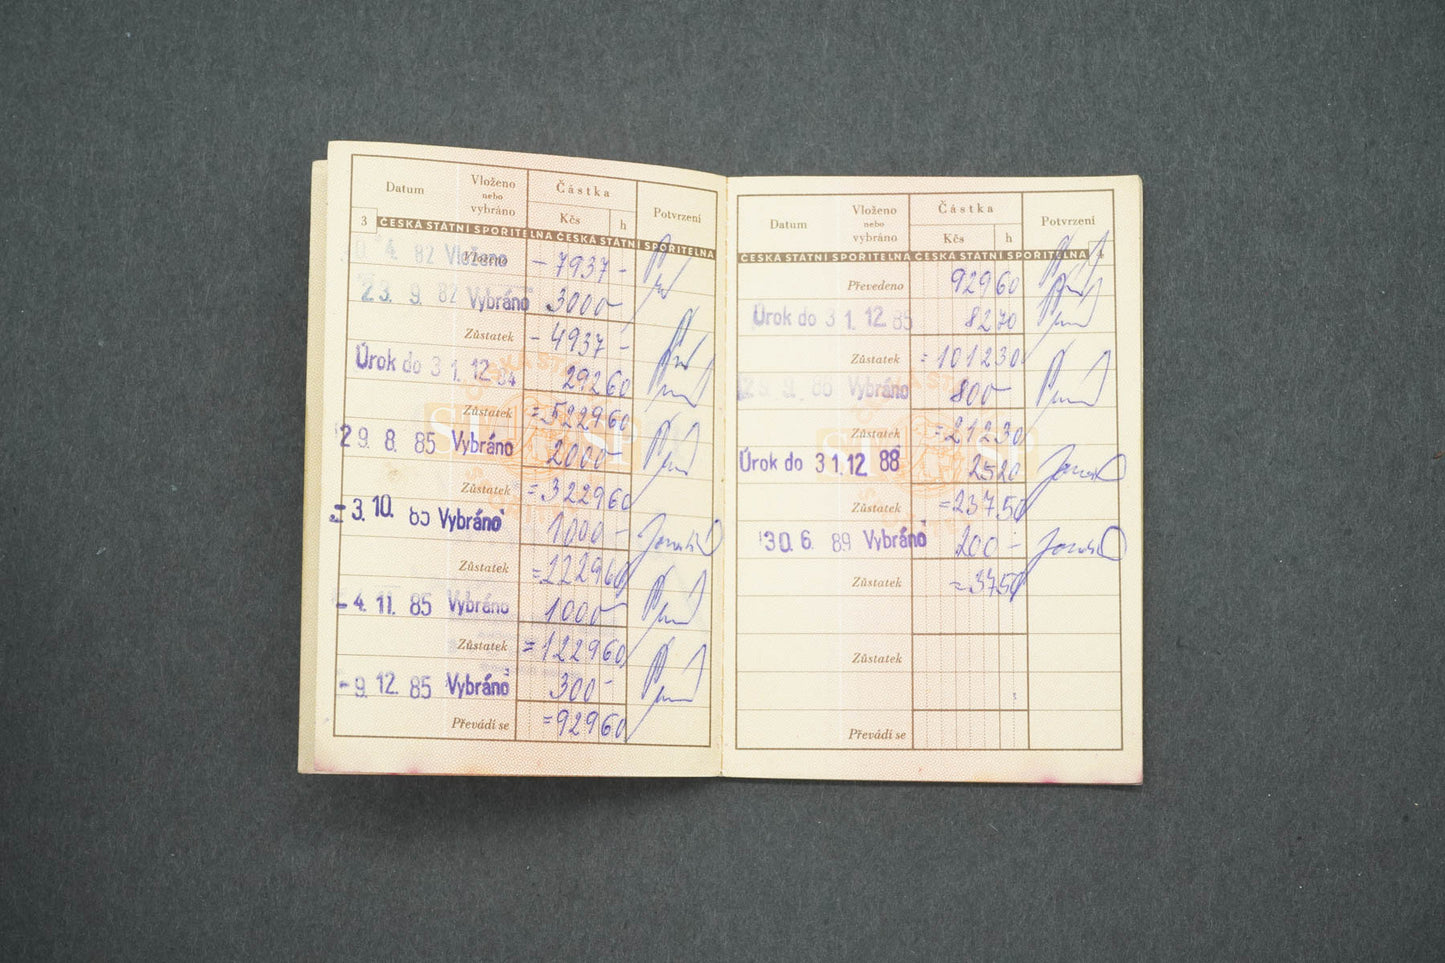 Datum Vloženo nebo vybráno Částka Kčs h Potvrzení
3 ČESKÁ STÁTNÍ SPOŘITELNA ČESKÁ STÁTNÍ SPOŘITELNA
4. 82 Vloženo - 7937 -
23. 9. 82 Vybráno 3000 -
Zůstatek - 4937 -
Úrok do 31. 12. 84 292 60
Zůstatek = 5229 60
29. 8. 85 Vybráno 2000 -
Zůstatek = 3229 60
- 3. 10. 85 Vybráno 1000 -
Zůstatek = 2229 60
- 4. 11. 85 Vybráno 1000 -
Zůstatek = 1229 60
- 9. 12. 85 Vybráno 300 -
Převádí se = 929 60
Datum Vloženo nebo vybráno Částka Kčs h Potvrzení
ČESKÁ STÁTNÍ SPOŘITELNA ČESKÁ STÁTNÍ SPOŘITELNA 4
Převedeno 929 60
Úrok do 31. 12. 85 82 70
Zůstatek = 1012 30
9. 86 Vybráno 800 -
Zůstatek = 212 30
Úrok do 31. 12. 88 25 20
Zůstatek = 237 50
30. 6. 89 Vybráno 200 -
Zůstatek = 37 50
Zůstatek
Převádí se